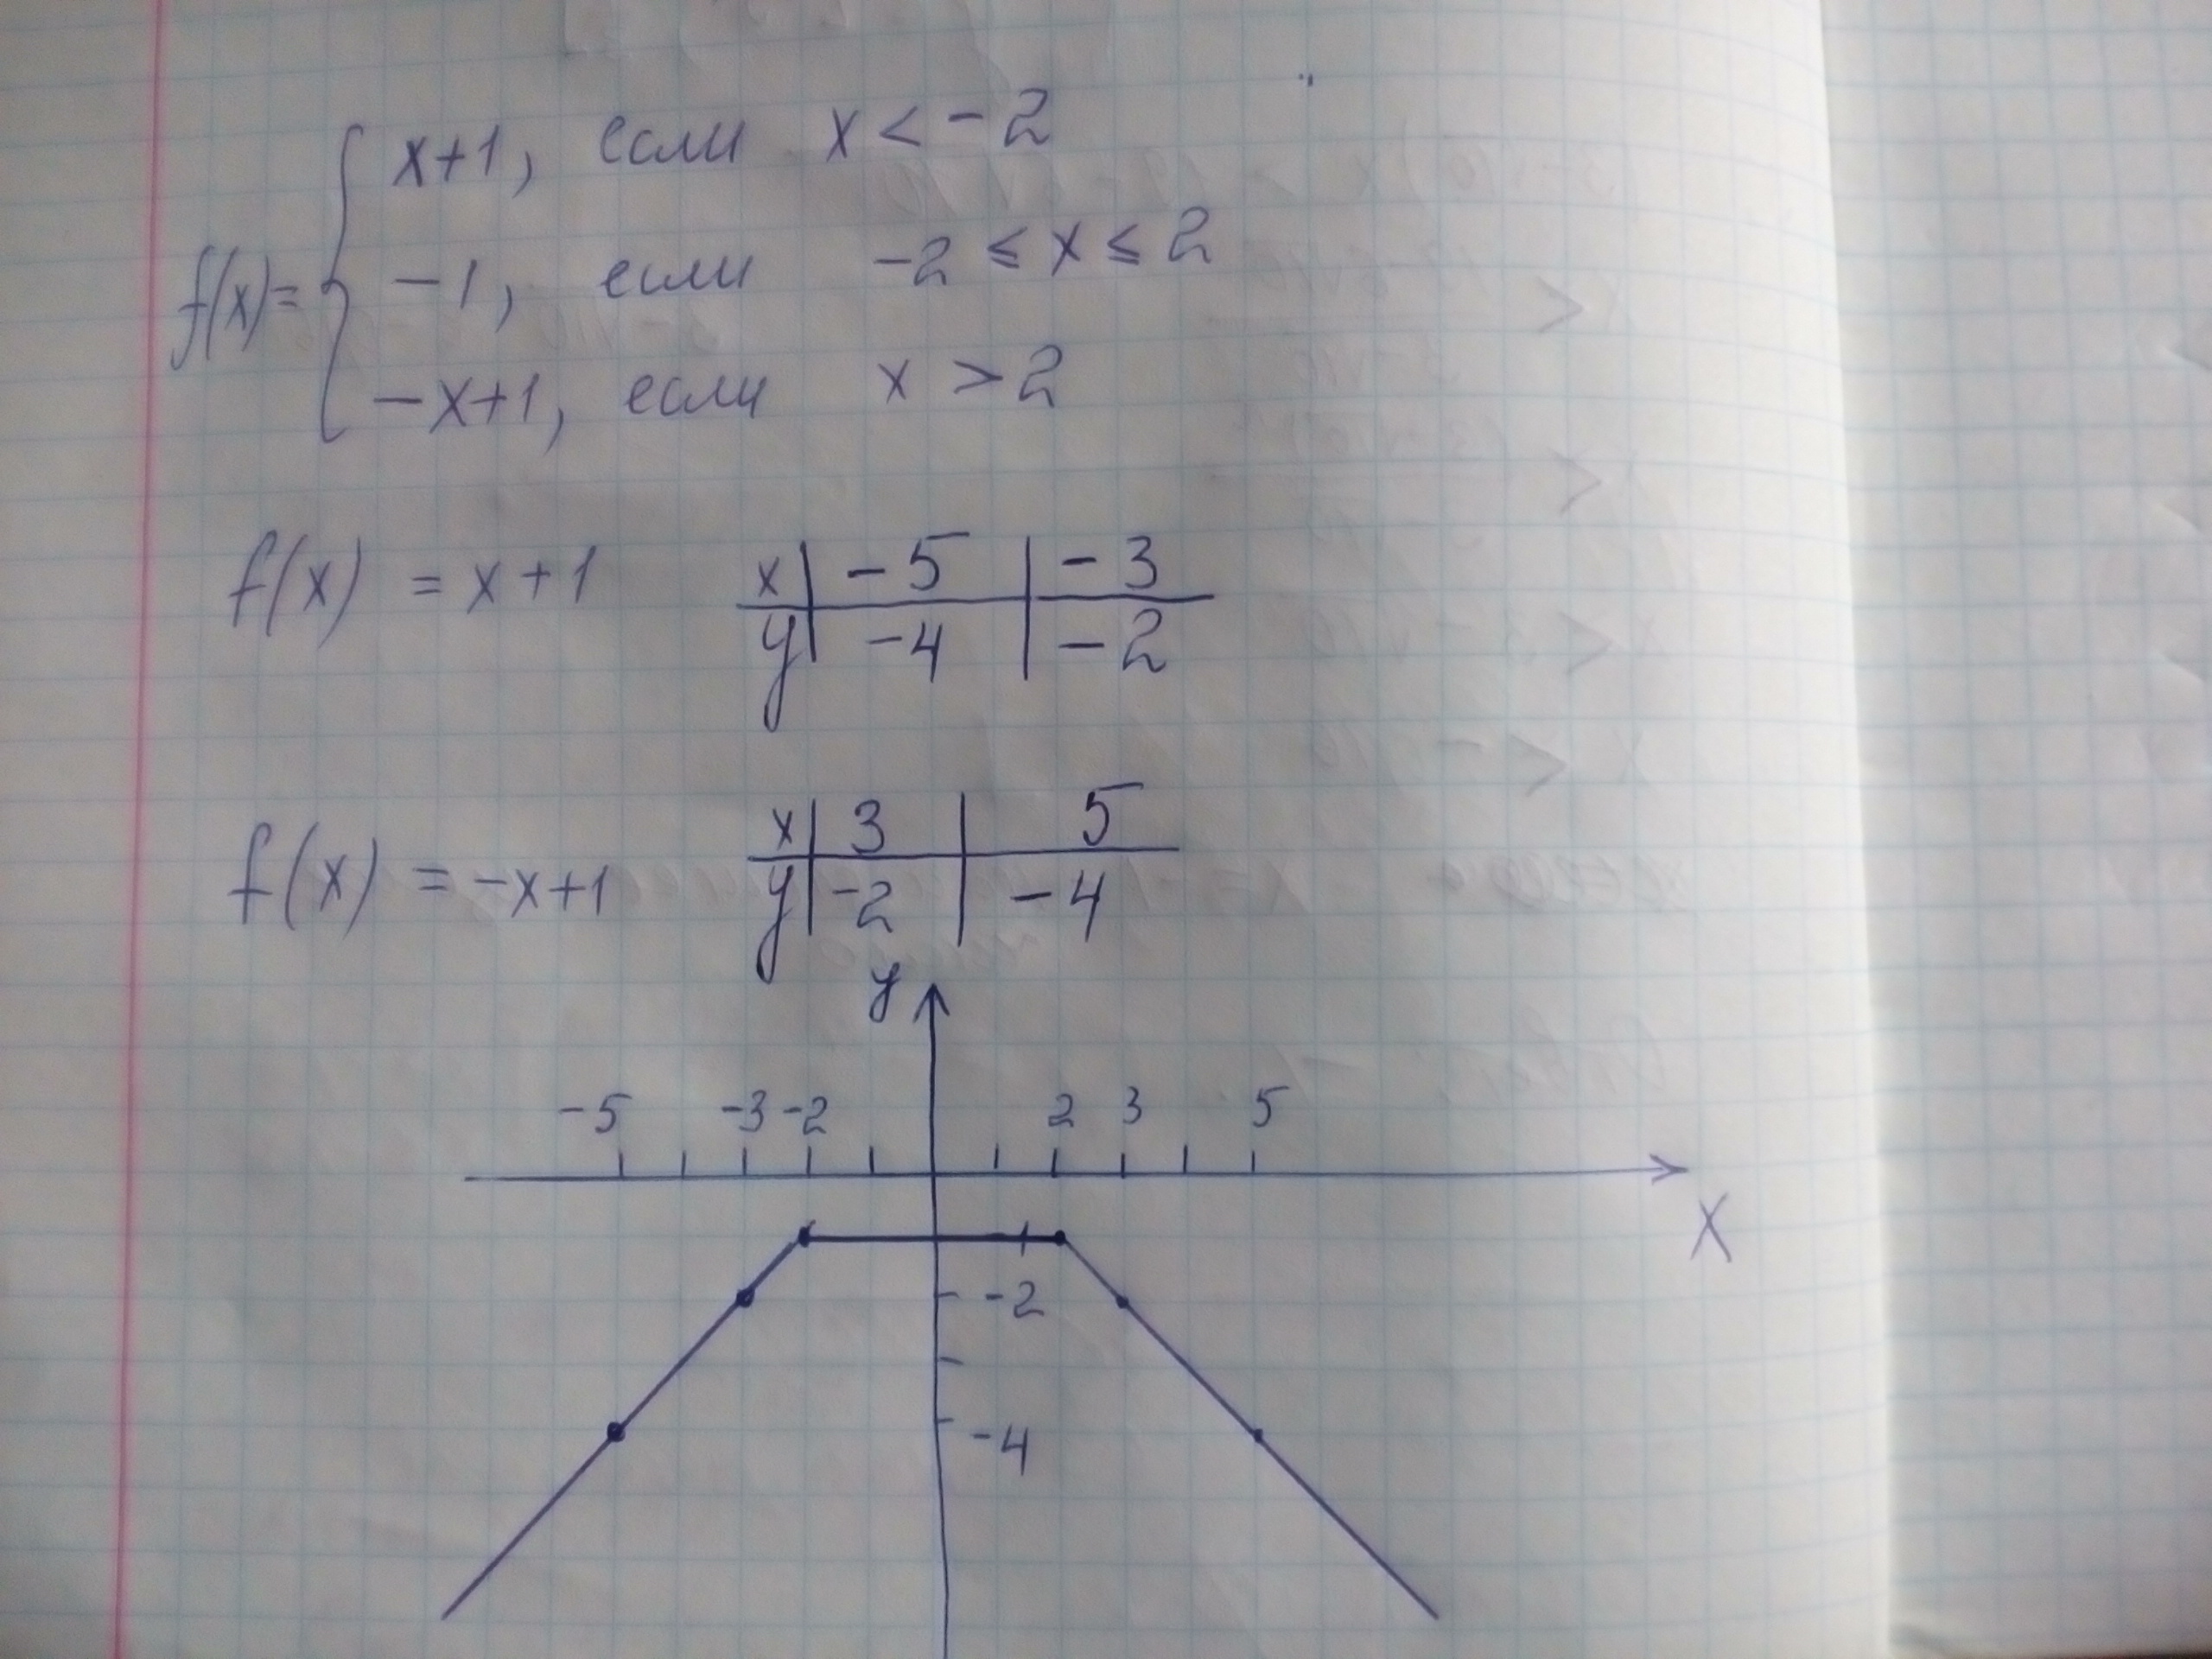 x+1, если x < -2
f(x)= -1, если -2 ≤ x ≤ 2
-x+1, если x > 2
f(x) = x+1
x | -5 | -3
y | -4 | -2
f(x) = -x+1
x | 3 | 5
y | -2 | -4
y
-5 -3 -2 2 3 5
X
-1
-2
-4